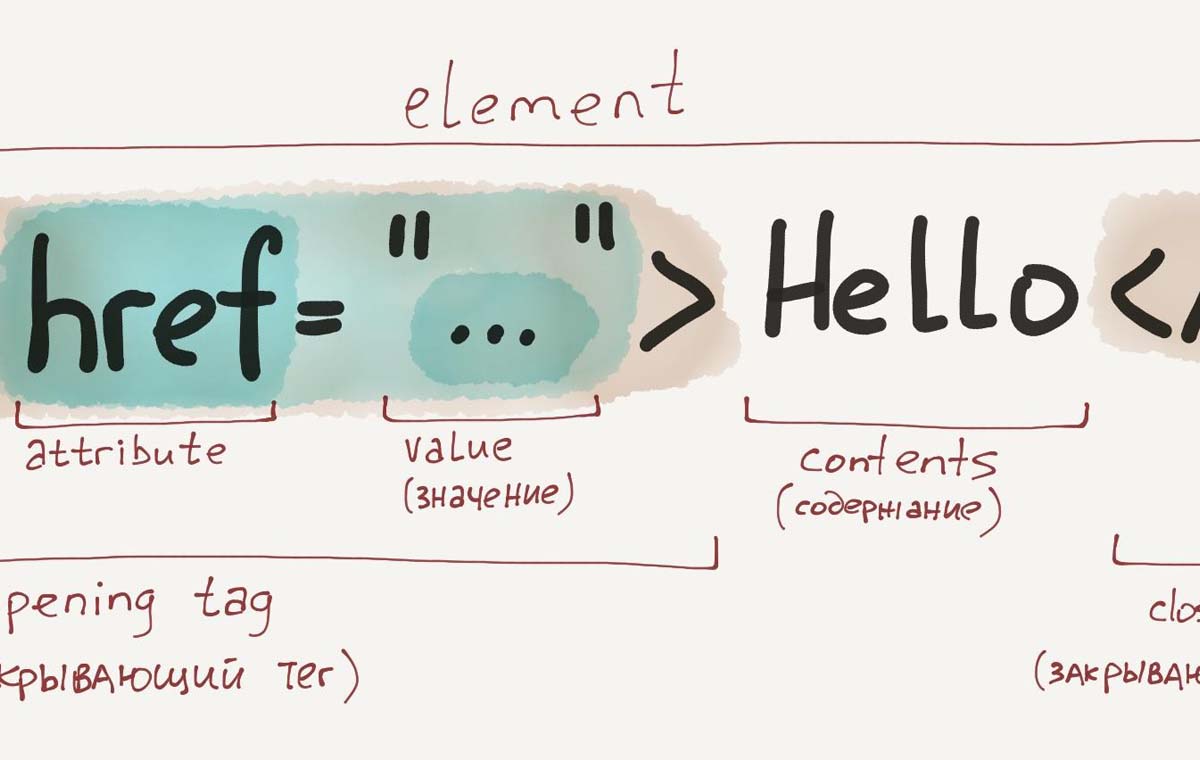 element
href="...">Hello</
attribute value contents
(значение) (содержание)
pening tag clos
крывающий тег) (закрываю